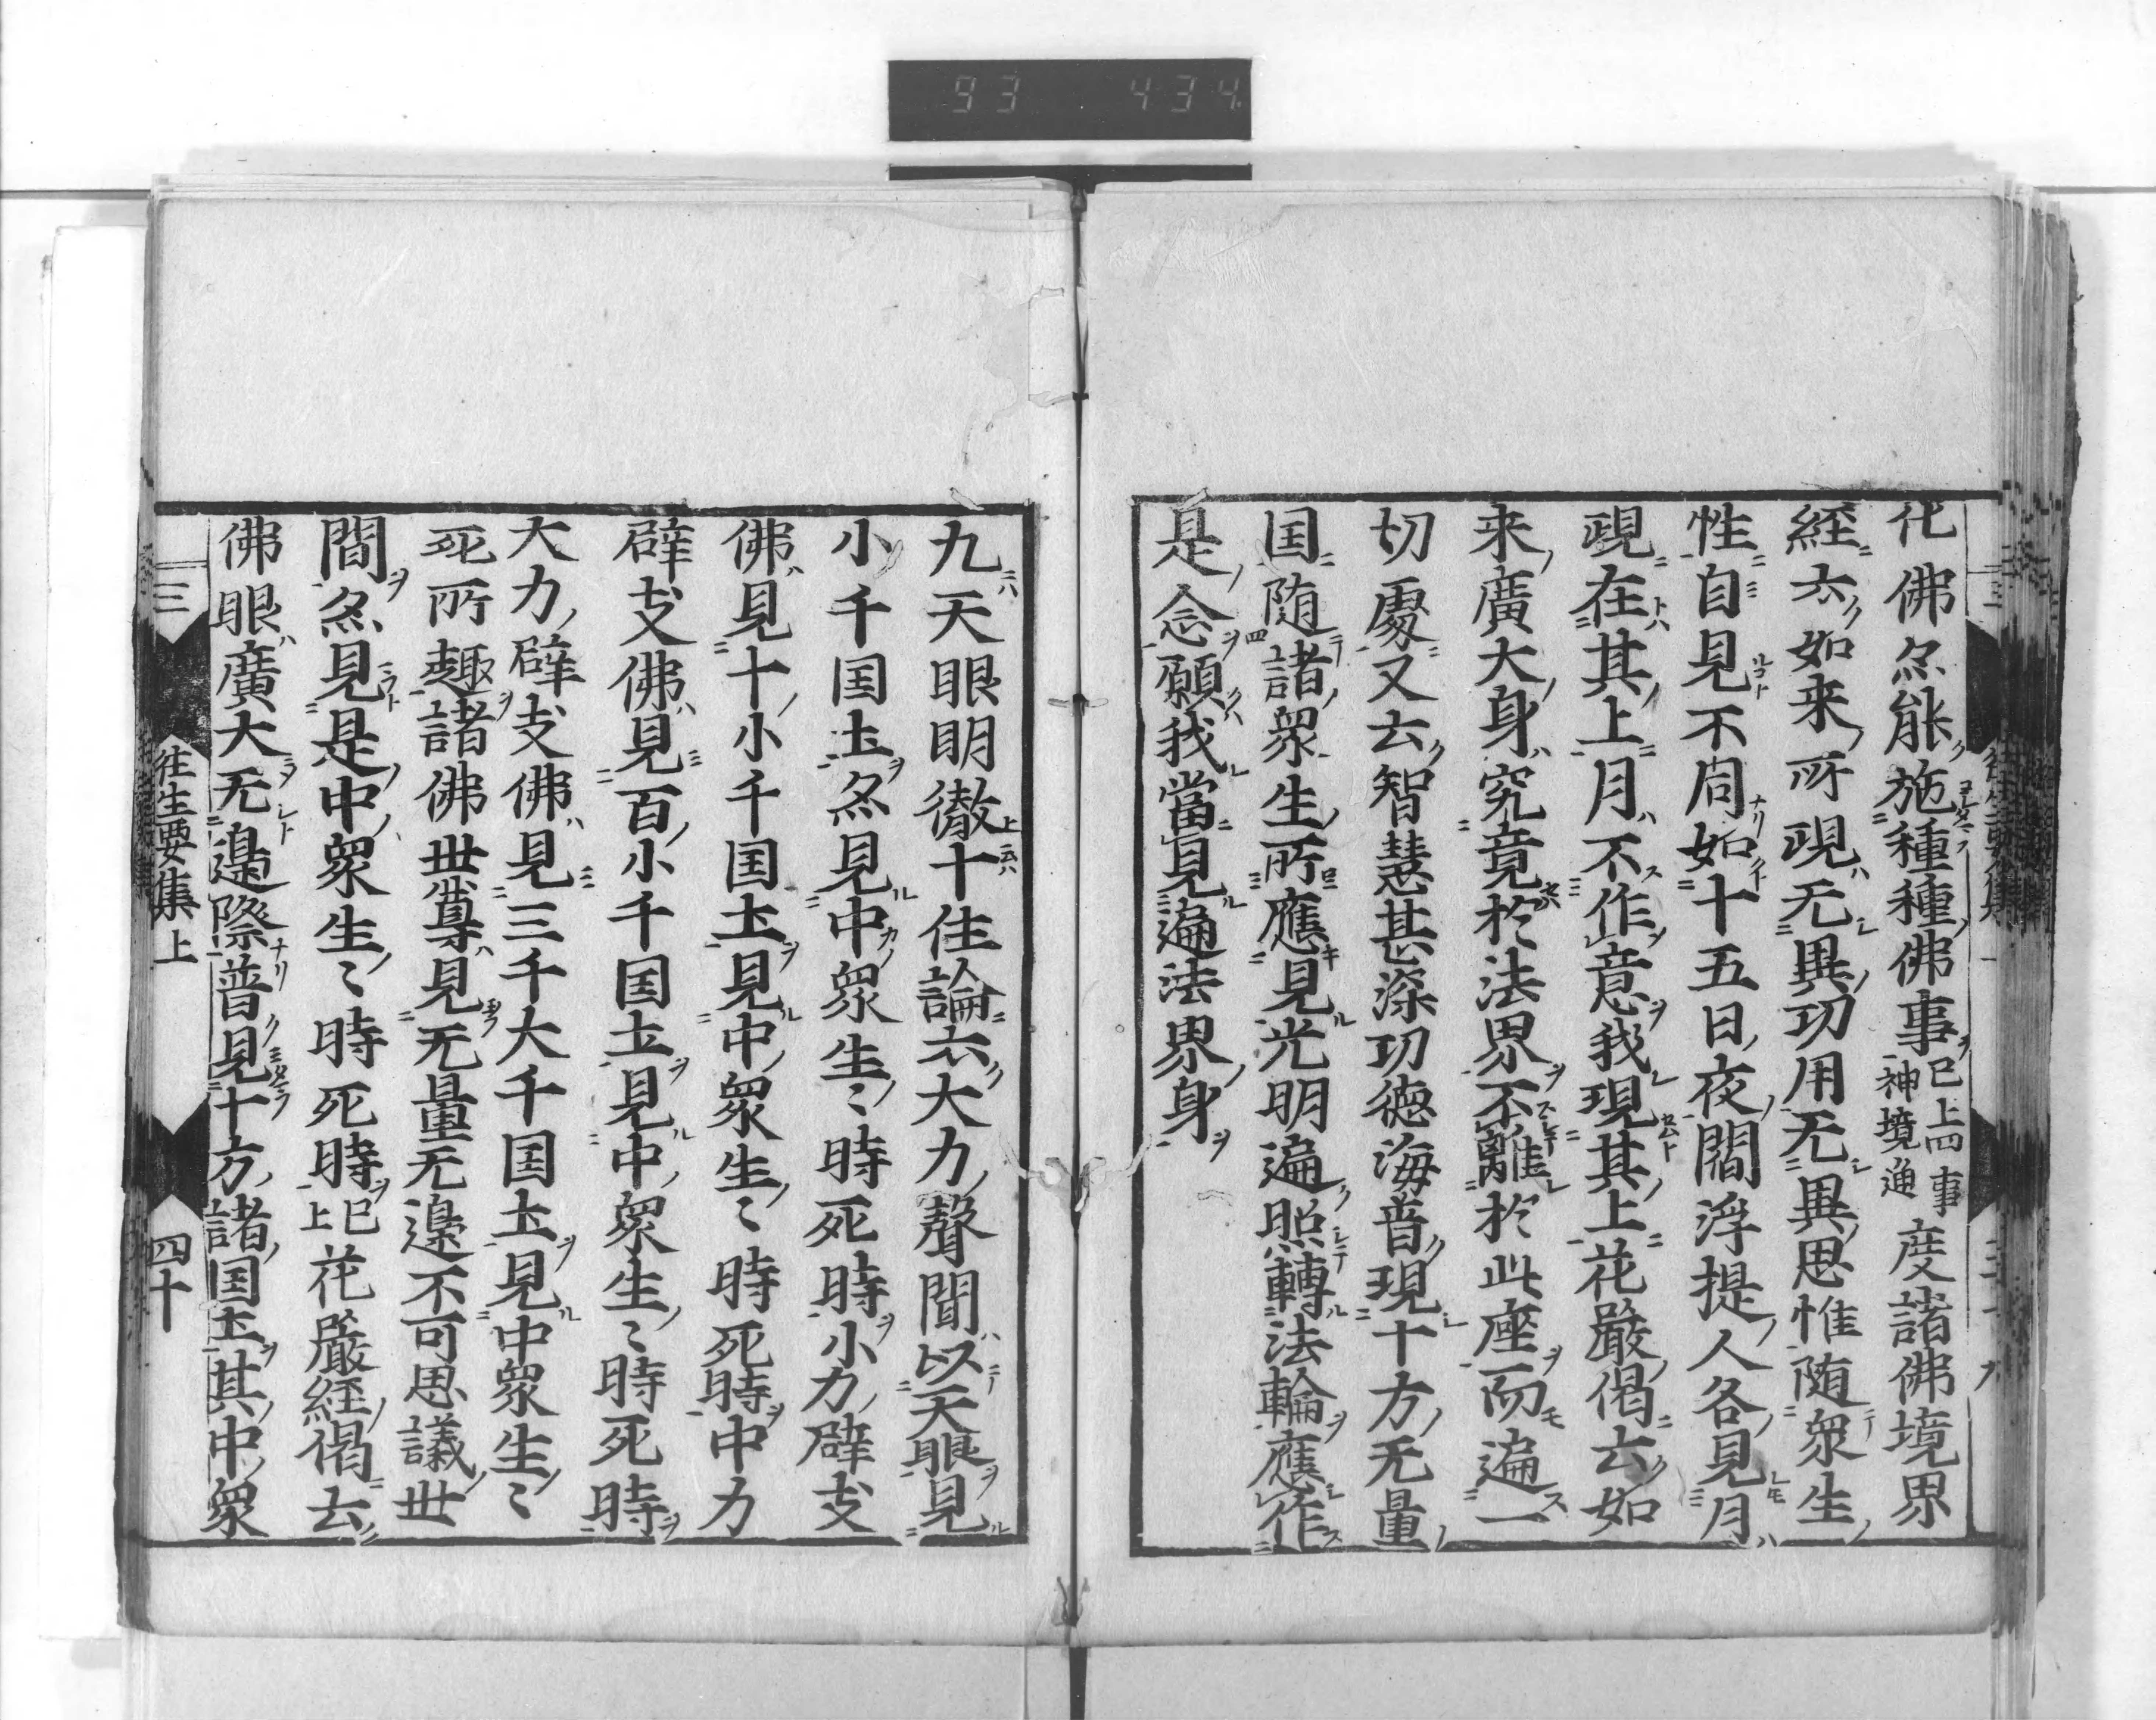 93 434
化佛𡖋能施種種佛事已上四事神境通度諸佛境界
経云如来所現无異功用无異思惟随衆生
性自見不同如十五日夜閻浮提人各見月
現在其上月不作意我現其上花嚴偈云如
来廣大身究竟於法界不離於此座而遍一
切處又云智慧甚深功徳海普現十方无量
国随諸衆生所應見光明遍照轉法輪應作
是念願我當見遍法界身
九天眼明徹十住論云大力聲聞以天眼見
小千国土𡖋見中衆生〻時死時小力辟支
佛見十小千国土見中衆生〻時死時中力
辟支佛見百小千国土見中衆生〻時死時
大力辟支佛見三千大千国土見中衆生〻
死所趣諸佛世尊見无量无邊不可思議世
間𡖋見是中衆生〻時死時已上花嚴経偈云
佛眼廣大无邊際普見十方諸国土其中衆
三 往生要集上 四十